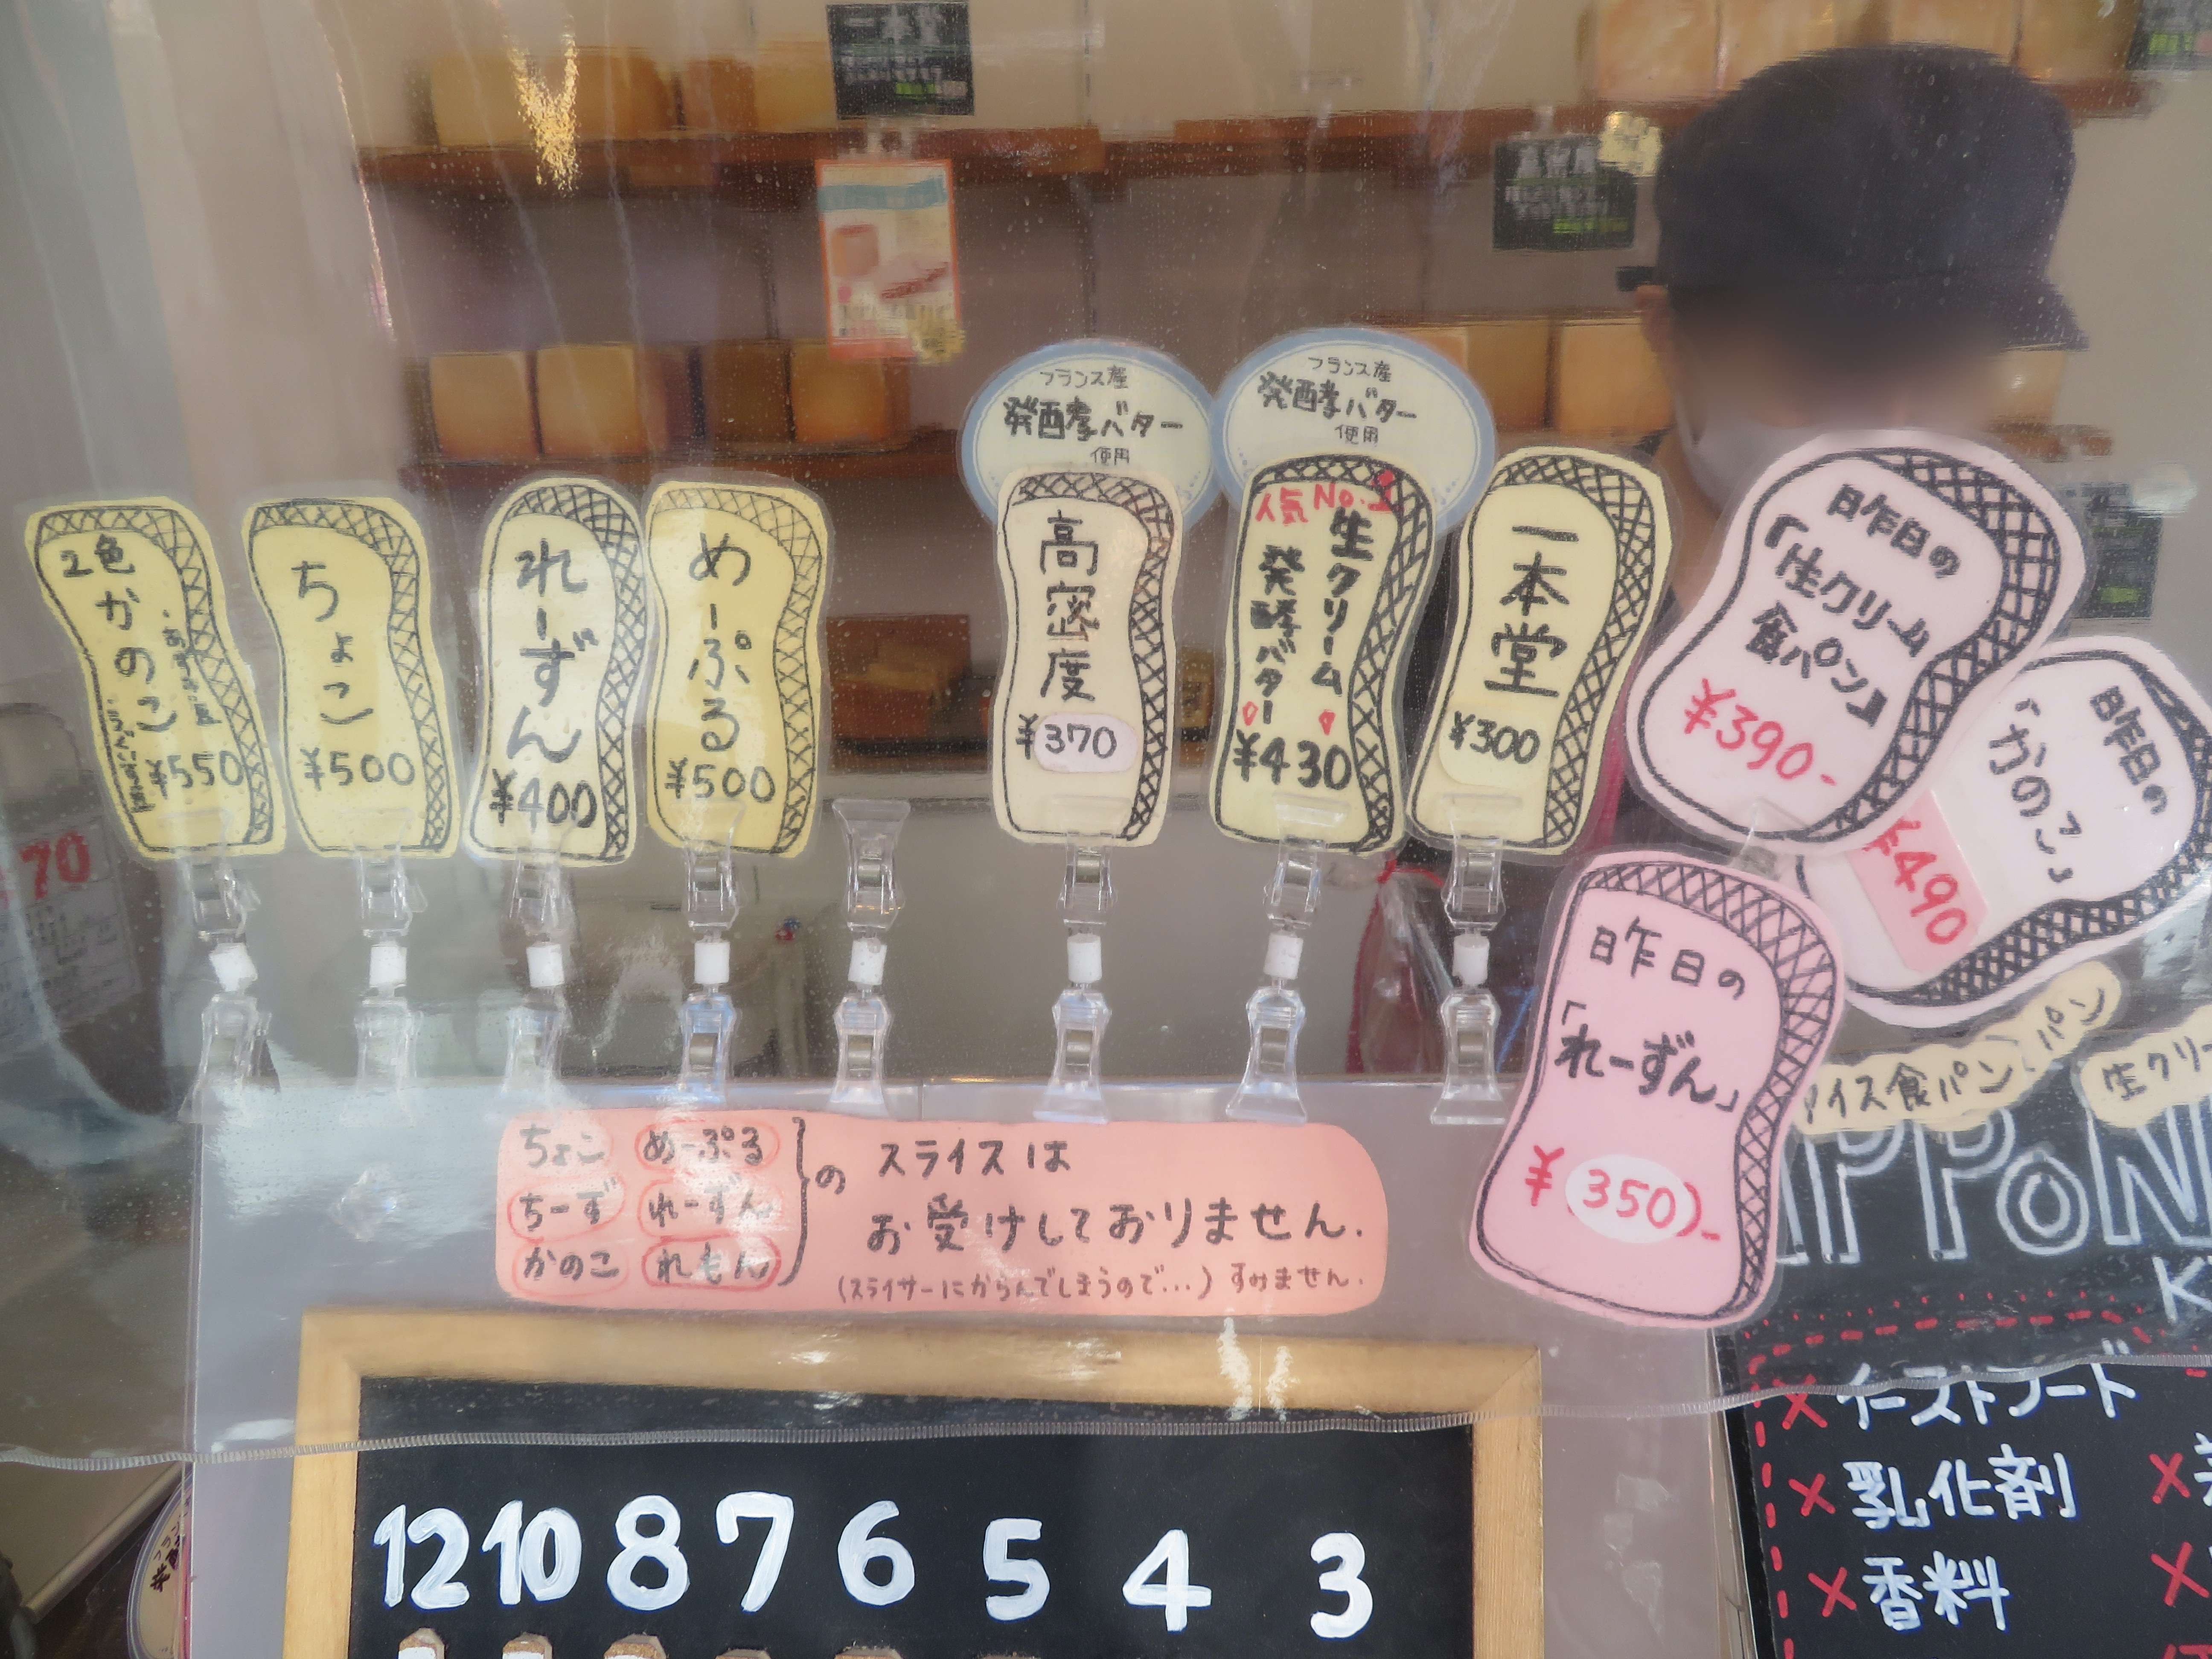 2色
かのこ
¥550
ちょこ
¥500
れーずん
¥400
めーぷる
¥500
フランス産
発酵バター
使用
高密度
¥370
フランス産
発酵バター
使用
人気No.1
生クリーム
発酵バター
¥430
一本堂
¥300
昨日の
「生クリーム
食パン」
¥390-
昨日の
「かのこ」
¥490
昨日の
「れーずん」
¥350-
70
ちょこ めーぷる
ちーず れーずん
かのこ れもん
の スライスは
お受けしておりません.
(スライサーにからんでしまうので…) すみません.
イス食パン
パン
生クリー
IPPON
K
× イーストフード
× 乳化剤
× 香料
12 10 8 7 6 5 4 3